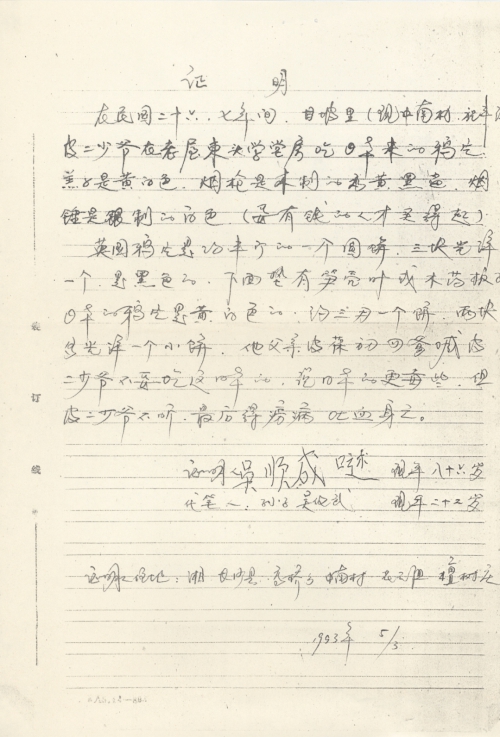 证 明
在民国二十六、七年间,甘坡里(现)中南村,
皮二少爷在老屋東头学堂房吃日本来的鸦片
盖子是黄白色,烟枪是木制的為黄黑色,烟
锤是银制的白色(要有钱的人才买得起)
英国鸦片是半斤的一个圆饼,三块光洋
一个,是黑色的,下面垫有笋壳叶或木药板
日本的鸦片是黄白色的,约三两一个饼,两块
光洋一个小饼,他父亲皮葆初四爹喊皮
二少爷不要吃这日本的,说日本的更毒些,但
皮二少爷不听,最后得痨病吐血身亡。
证明人吴顺成 口述 现年八十六岁
代笔人 孙子 吴 武 现年二十七岁
证明人住地:湖 长沙县 高桥乡 中南村 组 檀树庄
1993年 5/3
装 订 线